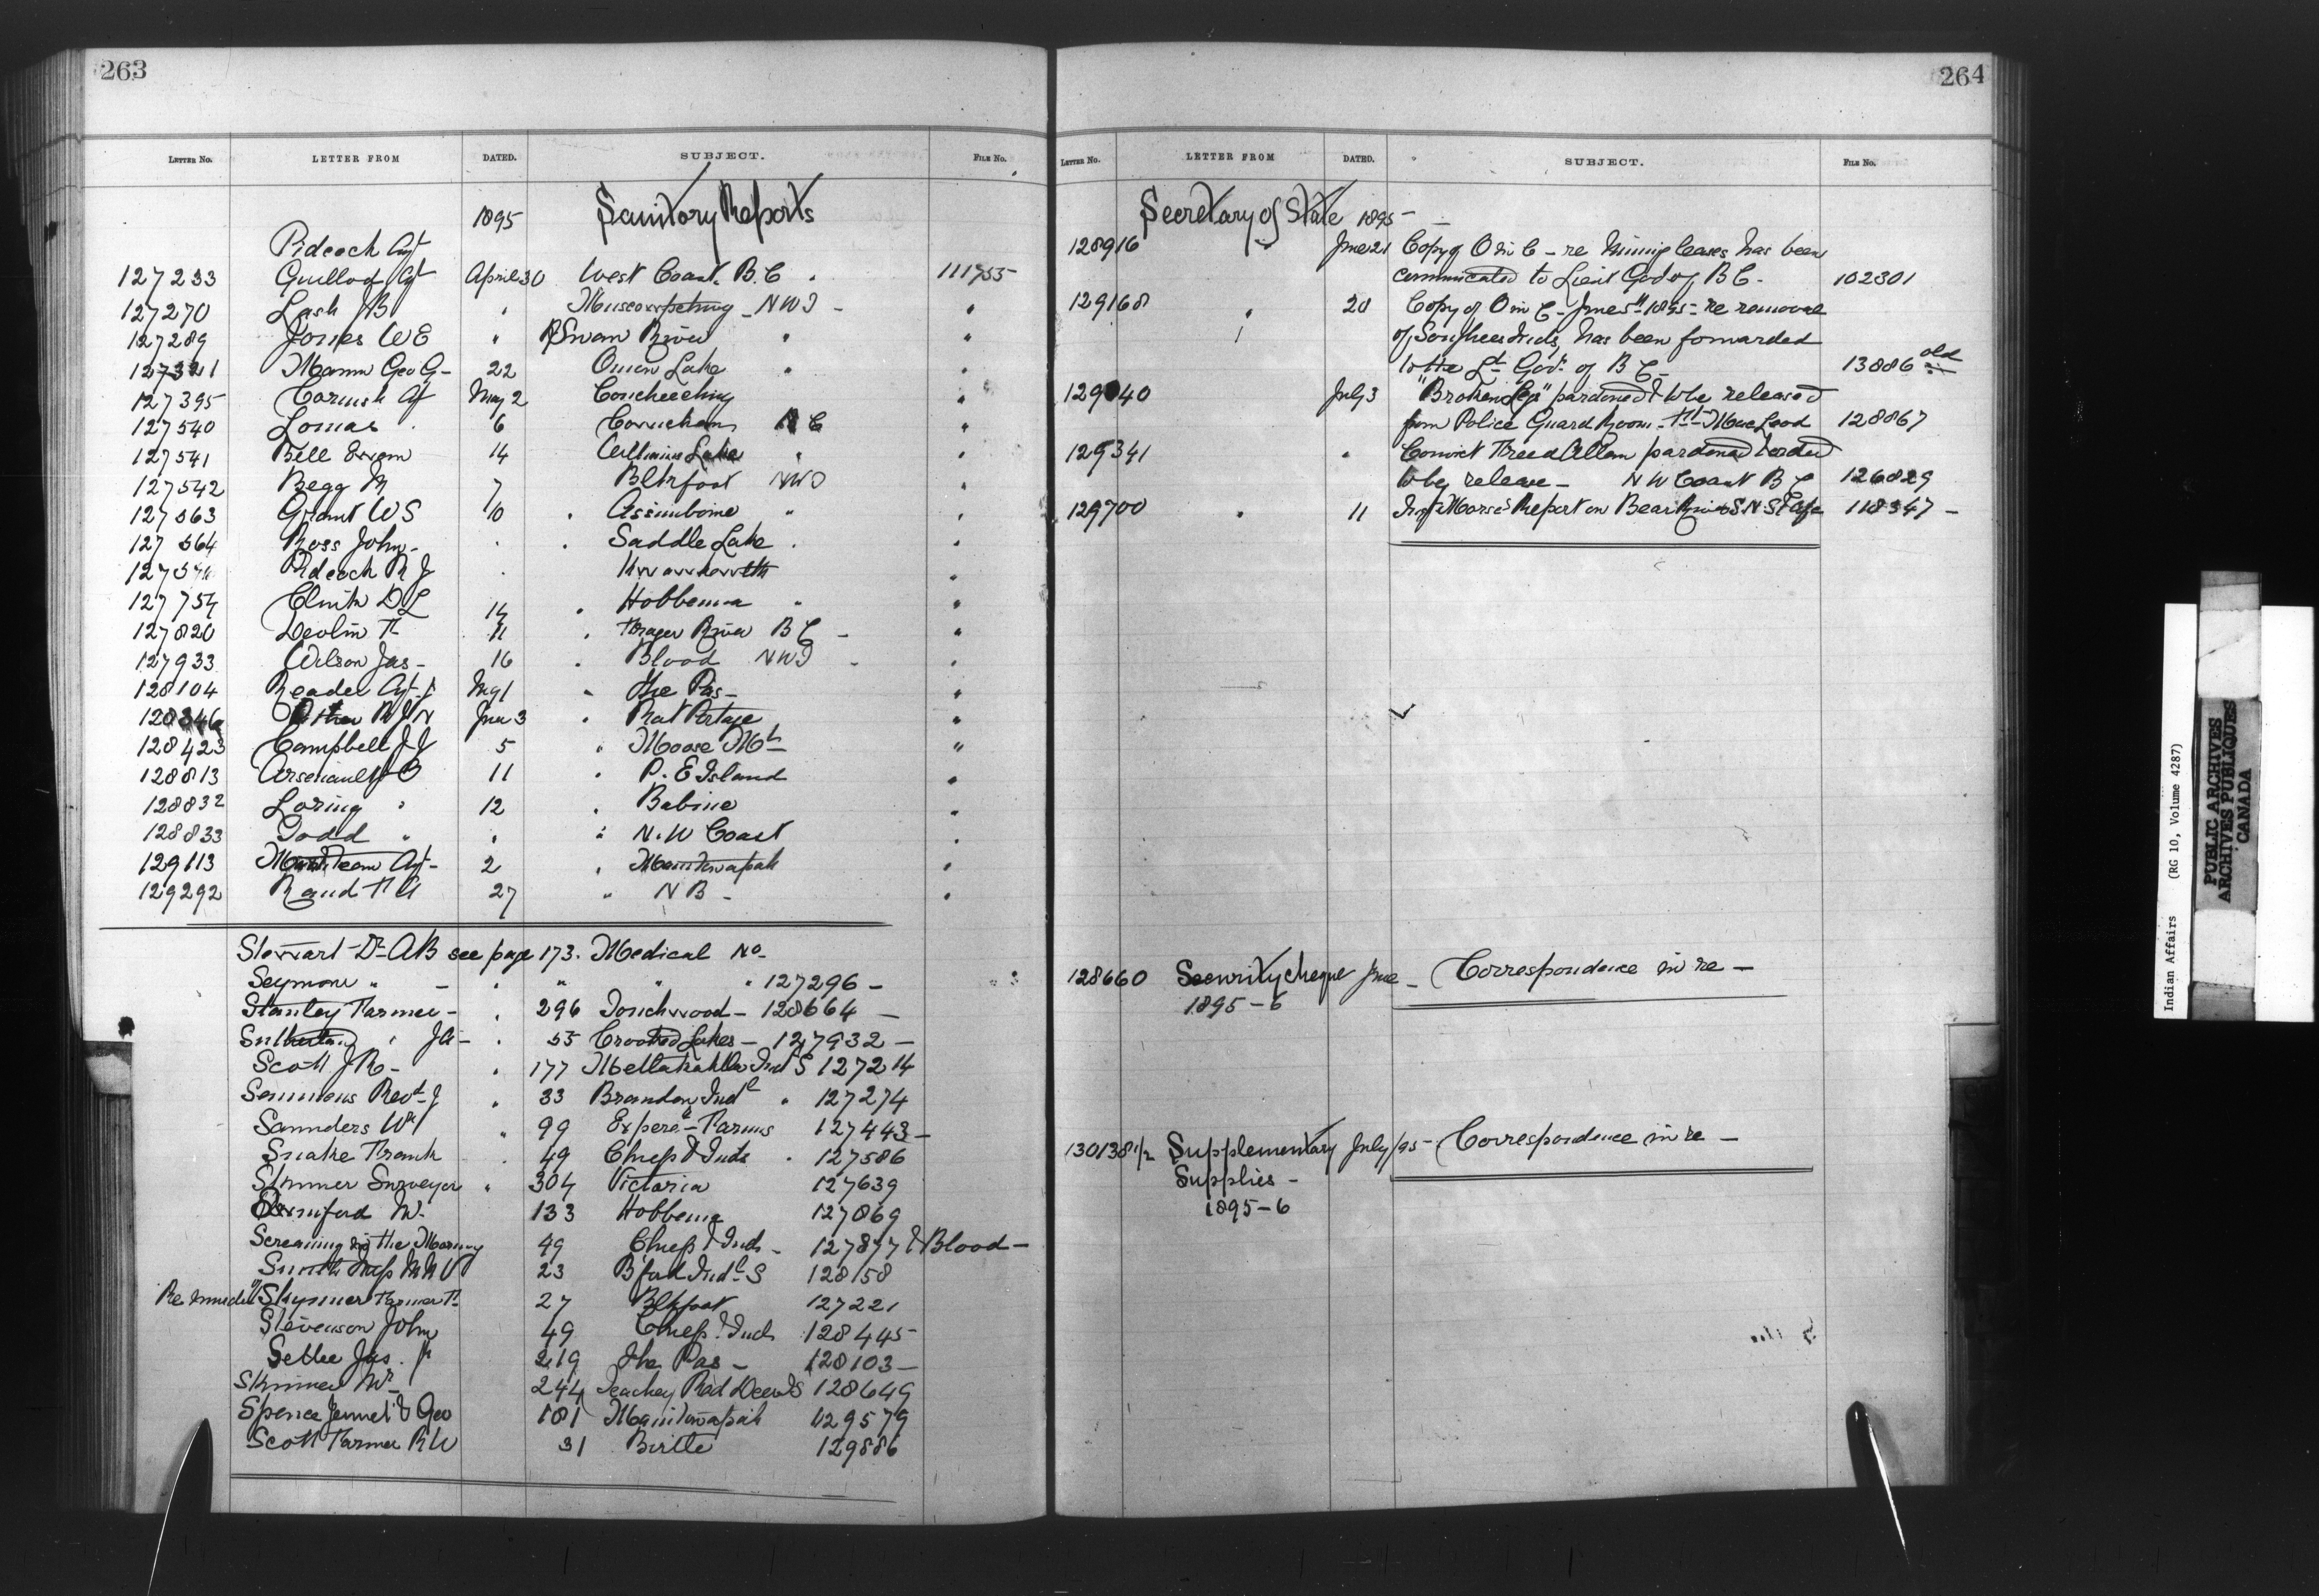 263
LETTER No. LETTER FROM DATED. SUBJECT. FILE No.
1895 Sanitory Reports
Pidcock Agt
127233 Guillod Agt April 30 West Coast. B.C. 111755
127270 Lash JB " Muscowpetung - NWT - "
127289 Jones WE " Swan River " "
127321 Mann Geo G - 22 Onion Lake " "
127395 Cornish Agt May 2 Coucheeching "
127540 Lomas 6 Cowichan B C "
127541 Bell Ewen 14 Williams Lake " "
127542 Begg M 7 Blkfoot NWT "
127563 Grant WS 10 " Assiniboine " "
127564 Ross John - " " Saddle Lake "
Pidcock R J " Kwawkewlth "
127754 Clink D L 14 " Hobbema " "
127820 Devlin F 11 " Fraser River B C - "
127933 Wilson Jas - 16 " Blood NWT - "
128104 Reader Agt J May 1 " The Pas - "
Pither R J N June 3 " Rat Portage "
128423 Campbell J J 5 " Moose Mt "
128813 Arsenault JO 11 " P. E Island "
128832 Loring " 12 " Babine "
128833 Todd " " " N. W Coast "
129113 Martineau Agt - 2 " Manitowapah "
129292 Rand F A 27 " N B - "
Stewart Dr AB see page 173. Medical No -
Seymour " - " " " " 127296 -
Stanley Farmer - " 296 Touchwood - 128664 -
Sutherland " JH - " 55 Crooked Lakes - 127932 -
Scott J R - " 177 Metlakahtla Ind S 127214
Semmens Revd J " 33 Brandon Indl " 127274
Saunders Wm " 99 Experl - Farms 127443 -
Snake Frank " 49 Chiefs & Inds " 127586
Skinner Surveyor " 304 Victoria 127639
W. 133 Hobbema 127869
Screaming in the Morning 49 Chiefs & Inds - 127877 & Blood -
Smith Miss M N V 23 Bford Indl S 128158
Re murder of Skynner Farmer F. 27 Blkfoot 127221
Stevenson John 49 Chiefs & Inds 128445
Settee Jas. Jr 219 The Pas - 128103 -
Skinner Mr 244 Teacher Red Deer I S 128649
Spence Jennet & Geo 181 Manitowapah 129579
Scott Farmer R W 31 Birtle 129886
264
LETTER No. LETTER FROM DATED. SUBJECT. FILE No.
Secretary of State 1895 -
128916 " June 21 Copy of O in C - re Mining leases has been
communicated to Lieut Gov of B C - 102301
129168 " 20 Copy of O in C - June 5th 1895 - re removal
of Songhees Inds, has been forwarded
to the Lt Govr of B C - 13886 old
129040 July 3 "Broken Leg" pardoned & to be released
from Police Guard Room - Ft Mac Leod 128867
129341 " Convict Freed Allam pardoned & orderd
to be release - N W Coast B C 126829
129700 " 11 Insp Morse's Report on Bear River S. N. S 118347 -
128660 Security cheque June - Correspondence in re -
1895 - 6
130138 1/2 Supplementary July/95 - Correspondence in re -
Supplies -
1895 - 6
Indian Affairs (RG 10, Volume 4287)
PUBLIC ARCHIVES
ARCHIVES PUBLIQUES
CANADA